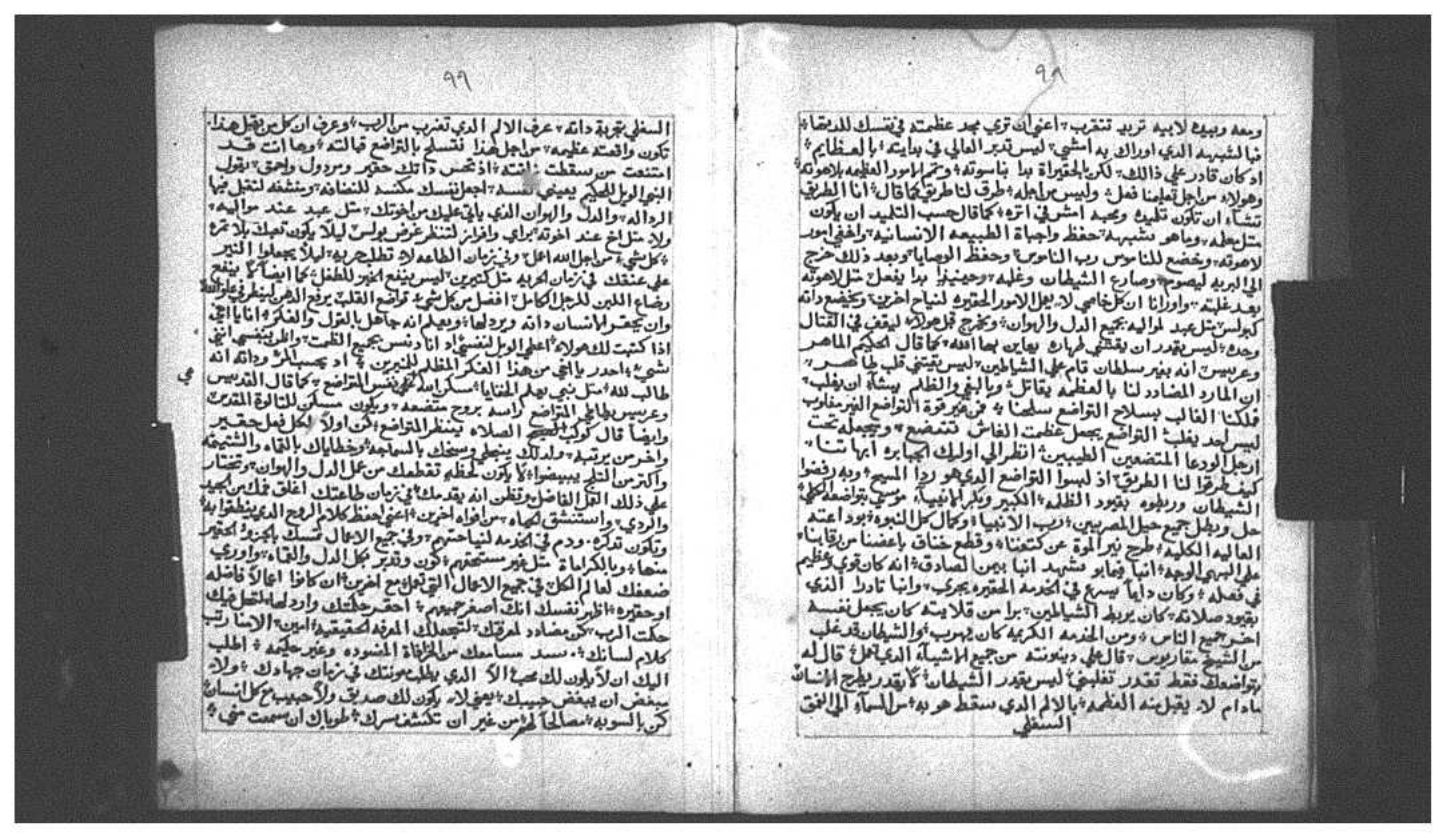 ٩٨
ومعه وبيده لابيه تريد تتقرب اعني ان تري مجد عظمته في نفسك للديقا
فبالشبهه الدي اوراك به امشي ليس تدبر العالي في بدايته بالعظايم
اد كان قادر علي ذالك لكن بالحقيراة بدا بناسوته وتمم الامور العظيمه بلاهوته
وهولاء من اجل تعليمنا فعل وليس من اجله طرق لنا طريق كما قال انا الطريق
تشاء ان تكون تلميده ومحبه امش في اتره كما قال حسب التلميد ان يكون
مثل معلمه وماهو تشبهه حفظ واجباة الطبيعه الانسانيه واخفي امور
لاهوته وخضع للناموس رب الناموس وحفظ الوصايا وبعد ذلك خرج
الي البريه ليصوم وصارع الشيطان وغلبه وحينيذ بدا يفعل مثل لاهوته
بعد غلبته واورانا ان كل خاصي لا يعمل الامور الحقيره لنياح اخرين ويخضع داته
كبولس مثل عبد لمواليه بجميع الدل والهوان ويخرج قبل هولاء ليقف في القتال
وحده ليس يقدر ان يقتني طهاره يعاين بها الله كما قال الحكيم الماهر
وغريس انه بغير سلطان قام علي الشياطين ليس يقتني قلب طاهر
ان المارد المضادد لنا بالعظمه يقاتل وبالبغي والظلم يشاء ان يغلب
فلكنا الغالب بسلاح التواضع سلحنا به من غير قوة التواضع الغير مغلوب
ليس احد يغلب التواضع يجعل عظمت الغاش تتضع ويجعله تحت
ارجل الودعا المتضعين الطيبين انظر الي اوليك الجبابره ابهاتنا
كيف طرقوا لنا الطريق اذ لبسوا التواضع الدي هو ردا المسيح وبه رفضوا
الشيطان وربطوه بقيود الظلمه الكبير وبكر الانبياء موسي بتواضعه الكلي
حل وبطل جميع حيل المصريين رب الانبيا وكمال كل النبوه بوداعته
العاليه الكليه طرح نير الموة عن كتفنا وقطع خناق باغضنا من رقابنا
علي البهي الوجه انبا بمابو شهد انبا بيمن الصادق انه كان قوي وعظيم
في فضله وكان دايما يسرع في الخدمة الحقيره يجري وانبا تادرا الذي
بقيود صلاته كان يربط الشياطين برا من قلايته كان يجعل نفسه
احقر جميع الناس ومن الخدمه الكريمه كان يهرب والشيطان قد غلب
من الشيخ مقاريوس قال علي دينونته من جميع الاشياء الدي تعمل قال له
بتواضعك فقط تقدر تغلبني ليس يقدر الشيطان يطرح الانسان
مادام لا يقبل منه العظمه بالالم الدي سقط هو به من السماء الي العمق
السفلي
٩٩
السفلي بتجربة داته عرف الالم الدي تغرب من الرب وعرف ان كل من يقبل هذا
تكون واقعته عظيمه من اجل هذا نتسلح بالتواضع قبالته وها انت قد
امتنعت من سقطت اذ تحس داتك حقير ومردول واحمق يقول
النبي الويل للحكيم بعيني نفسه اجعل نفسك مكنسه للنضافه ومنشفه لتقبل فيها
الرداله والدل والهوان الذي ياتي عليك من اخوتك مثل عبد عند مواليه
ولا مثل اخ عند اخوته براي وافراز لتنظر غرض بولس ليلا يكون تعبك بلا تمره
كل شي من اجل الله اعمل وفي زمان الطاعه لا تطلب حريه ليلا يجعلوا النير
علي عنقك في زمان الحريه مثل كتيرين ليس ينفع الخبز للطفل كما ايضا لا ينفع
رضاع اللبن للرجل الكامل افضل من كل شي تواضع القلب يرفع الدهن لينظر في علو الله
وان يحقر الانسان داته ويردلها ويعلم انه جاهل بالقول والفكر انا يا اخي
اذا كتبت لك هولاء اعطي الويل لنفسي اد انا دنس بجميع الظمت واظن بنفسي اني
شي احدر يا اخي من هذا الفكر المظلم للخبرين اد يحسب المرء وداته انه
طالب لله مثل نبي يعلم الخفايا مسكن الله هي نفس المتواضع كما قال القديس
هي
وغريس يطاطي المتواضع راسه بروح متضعه ويكون مسكن للتالوة المقدس
وايضا قال كوكب الصبح الصلاه تنتظر المتواضع كن اولا لكل فعل حقير
واخر من يرتبه ولدلك ينجلي وسخك بالسماجه وخطاياك بالقماه والشتيمه
واكتر من التلج يبيضوا لا يكون لحظه تقطعك من عمل الدل والهوان وتختار
علي ذلك الفعل الفاضل وتظن انه يقدمك في زمان طاعتك اغلق فمك من الجيد
والردي واستنشق الحياه من افواه اخرين اعني حفظ كلام الروح الدي ينطقوا به
وتكون تدكره ودم في الخدمه لنياحتهم وفي جميع الاعمال تمسك بالجزو الحقير
منها وبالكراماة مثل غير مستحقهم كون وتدبر بكل الدل والقماه واوري
ضعفك لعالم الكل في جميع الاعمال التي تعمل مع اخرين ان كانوا اعمالا فاضله
او حقيره اظهر نفسك انك اصغر جميعهم احقر حكمتك واردلها لتحل فيك
حكت الرب كن مضادد لمعرفتك لتجعلك المعرفه الحقيقيه امين الاسا رتب
كلام لسانك وسد مسامعك من الخرافاة المفسوده وغير حليمه اطلب
اليك ان لا يكون لك محبه الا الدي يطلب معونتك في زمان جهادك ولا
تبغض ان يبغض حبيبك يعني لا يكون لك صديق ولا حبيب مع كل انسان
كن بالسويه مصالحا لهم من غير ان تكشف سرك طوباك ان سمعت مني